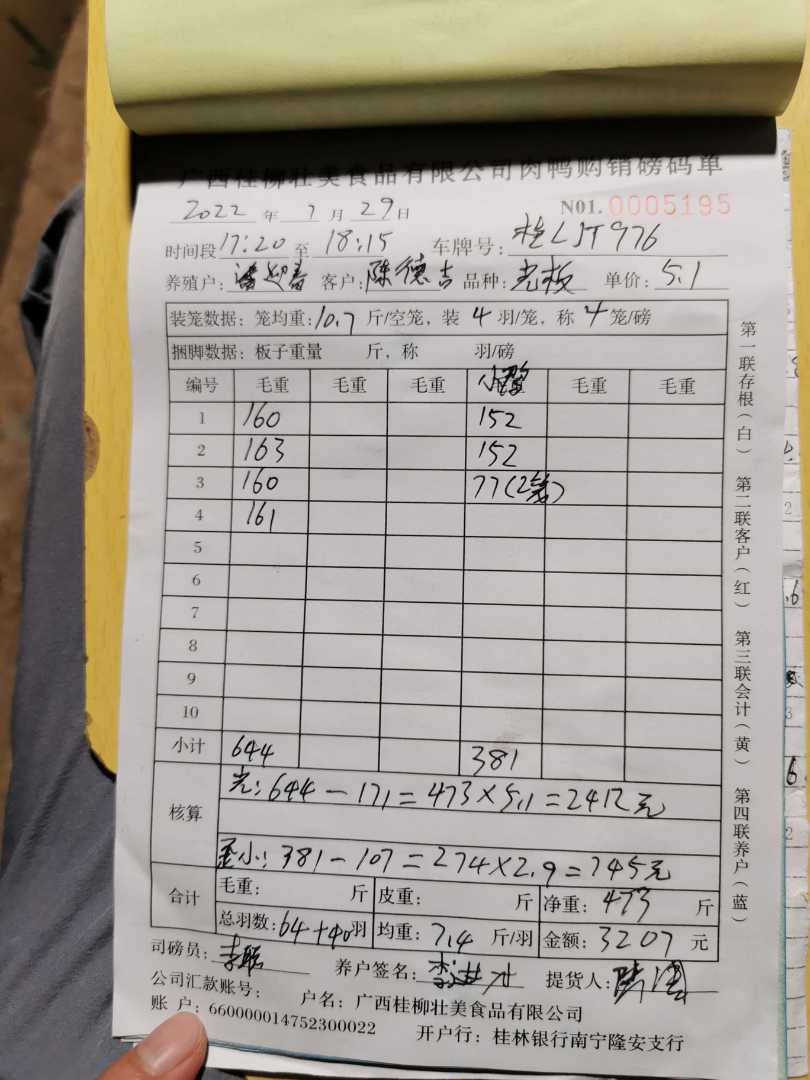 广西桂柳壮美食品有限公司肉鸭购销磅码单
2022 年 7 月 29 日 N01. 0005195
时间段 17:20 至 18:15 车牌号: 桂LJT976
养殖户: 客户: 陈德吉 品种: 光板 单价: 5.1
装笼数据: 笼均重: 10.7 斤/空笼, 装 4 羽/笼, 称 4 笼/磅
捆脚数据: 板子重量 斤, 称 羽/磅
编号 毛重 毛重 毛重 小 毛重 毛重
1 160 152
2 163 152
3 160 77(2笼)
4 161
5
6
7
8
9
10
小计 644 381
核算 光: 644-171=473×5.1=2412元
歪小: 381-107=274×2.9=795元
合计 毛重: 斤 皮重: 斤 净重: 473 斤
总羽数: 64+40 羽 均重: 7.4 斤/羽 金额: 3207 元
司磅员: 养户签名: 提货人:
公司汇款账号: 户名: 广西桂柳壮美食品有限公司
账 户: 660000014752300022 开户行: 桂林银行南宁隆安支行
第一联存根(白) 第二联客户(红) 第三联会计(黄) 第四联养户(蓝)